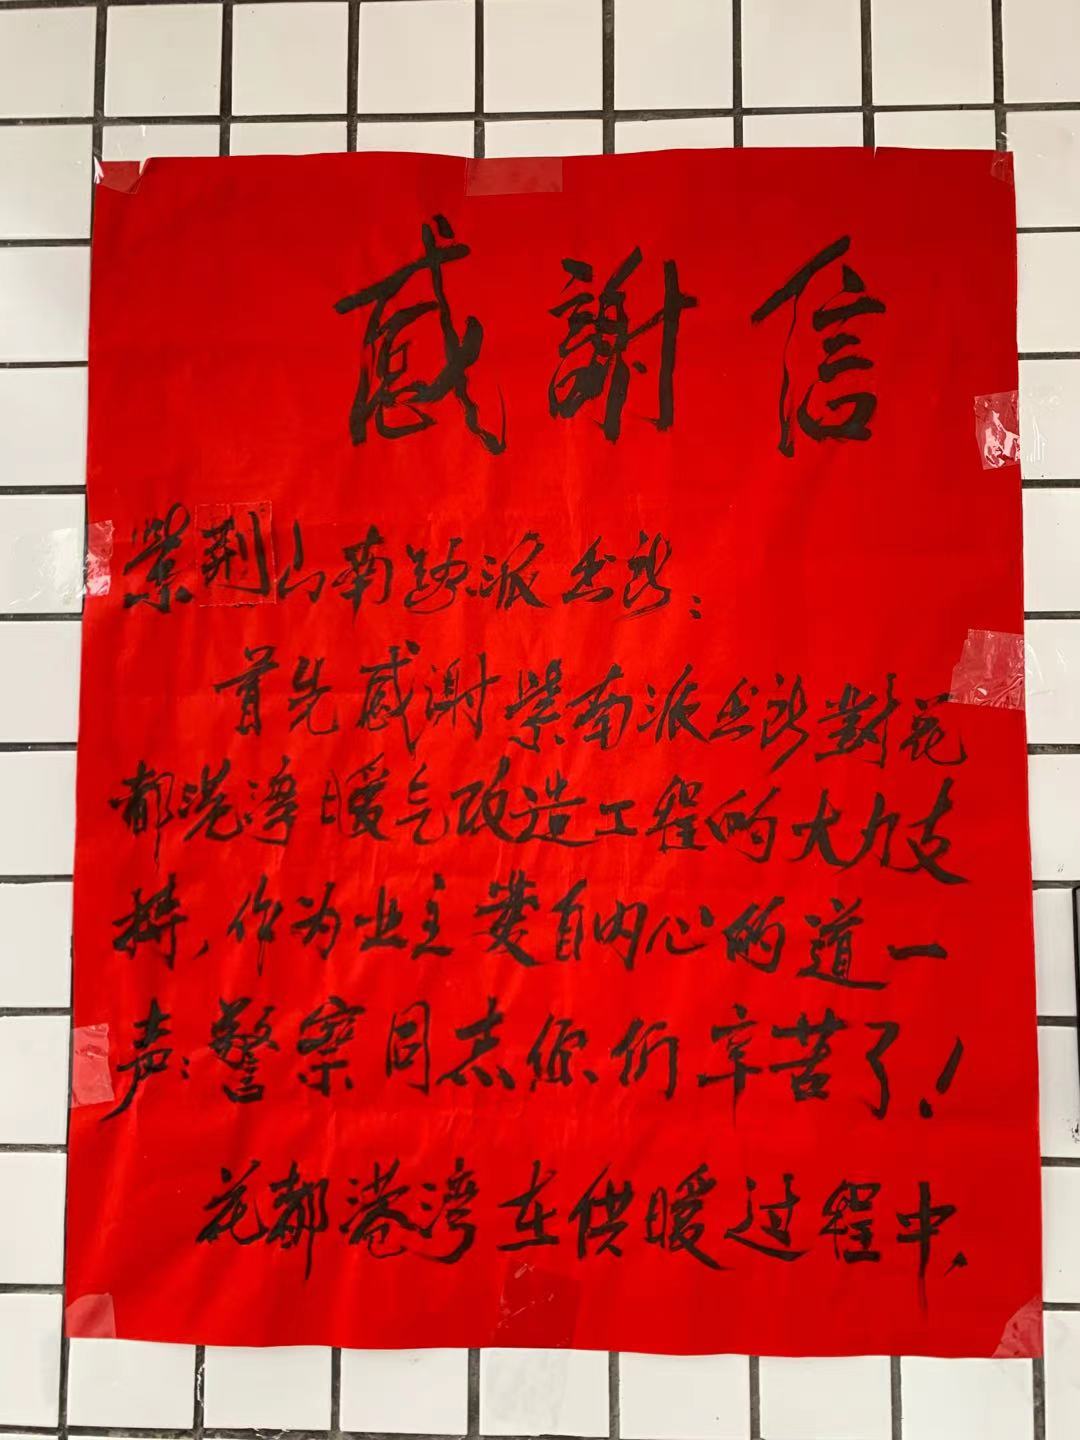 感謝信
紫荆山南路派出所:
首先感谢紫南派出所對花
都港湾暖气改造工程的大力支
持,作为业主发自内心的道一
声:警察同志你们辛苦了!
花都港湾在供暖过程中,